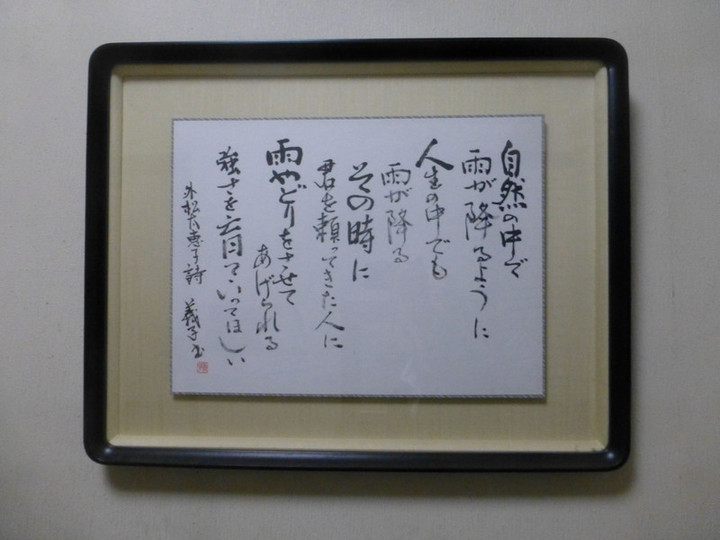 自然の中で
雨が降るように
人生の中でも
雨が降る
その時に
君を頼ってきた人に
雨やどりをさせて
あげられる
強さを育てていってほしい
恵子詩 義子书